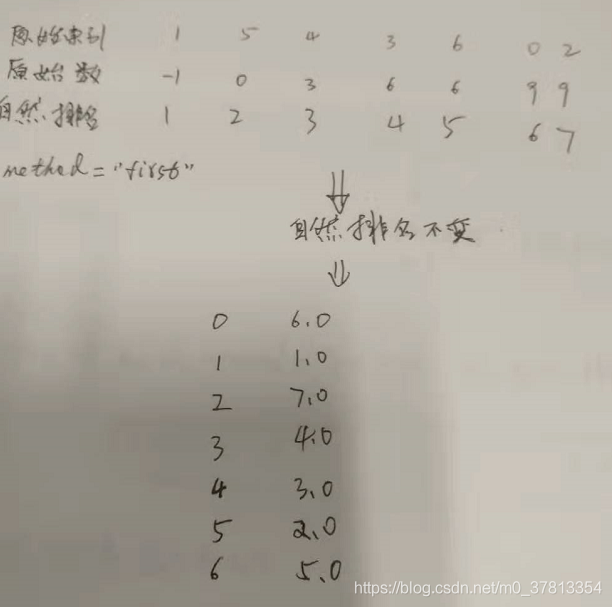 原始索引 1 5 4 3 6 0 2
原始数 -1 0 3 6 6 9 9
自然排名 1 2 3 4 5 6 7
method="first"
⇓
自然排名不变
⇓
0 6.0
1 1.0
2 7.0
3 4.0
4 3.0
5 2.0
6 5.0
https://blog.csdn.net/m0_37813354